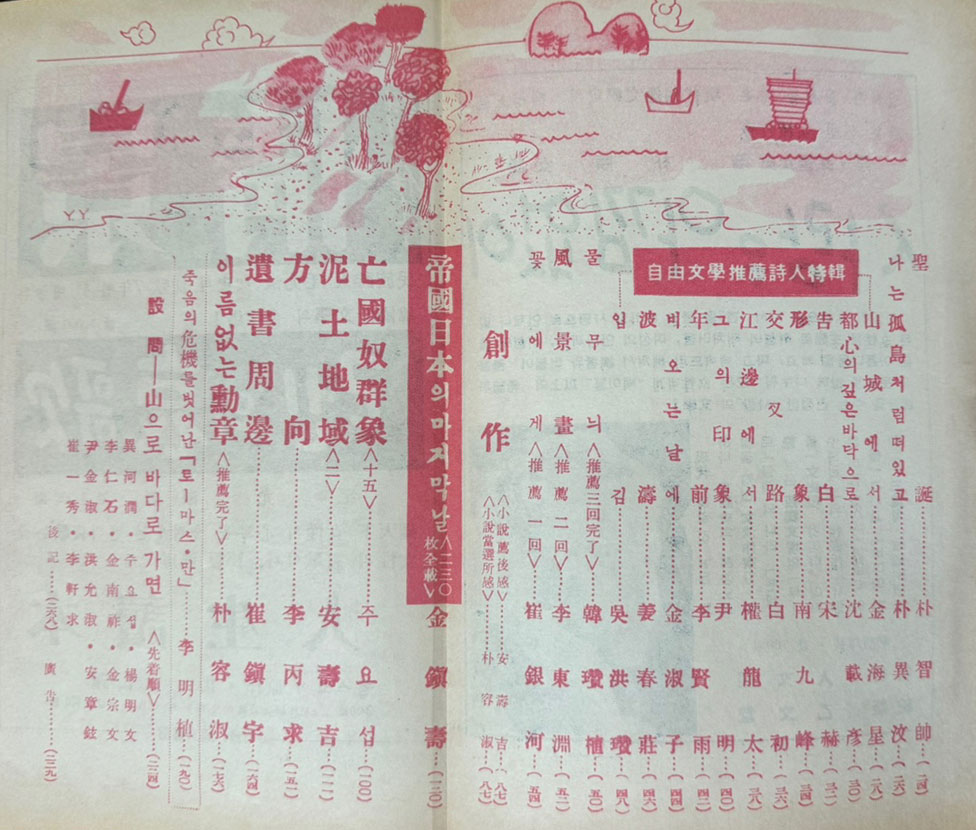 聖誕……朴智帥…(二四)
나는孤島처럼떠있고……朴異汶…(二六)
自由文學推薦詩人特輯
山城에서……金海星…(二八)
都心의깊은바닥으로……沈載彦…(三〇)
告白……宋赫…(三二)
形象……南九峰…(三四)
交叉路……白初…(三六)
江邊에서……權龍太…(三八)
그의印象……尹明…(四〇)
年前……李賢雨…(四二)
비오는날에……金淑子…(四四)
波濤……姜春莊…(四六)
입김……吳洪瓚…(四八)
물무늬<推薦三回完了>……韓瓚植…(五〇)
風景畫<推薦二回>……李東淵…(五二)
꽃에게<推薦一回>……崔銀河…(五四)
創作
<小說薦後感>……安壽吉…(八七)
<小說當選所感>……朴容淑…(八七)
帝國日本의마지막날<二三〇枚全載>金鎭壽
亡國奴群象<十五>……주요섭…(一〇〇)
泥土地域<二>……安壽吉
方向……李丙求…(一五一)
遺書周邊……崔鎭宇…(一六四)
이름없는勳章<推薦完了>……朴容淑…(一七六)
죽음의危機를벗어난「토-마스·만」……李明植…(一九〇)
設問――山으로바다로가면<先着順>
異河潤·주요섭·楊明文
李仁石·金南祚·金宗文
尹金淑·洪允淑·安章鉉
崔一秀·李軒求
後記 廣告…(二三九)